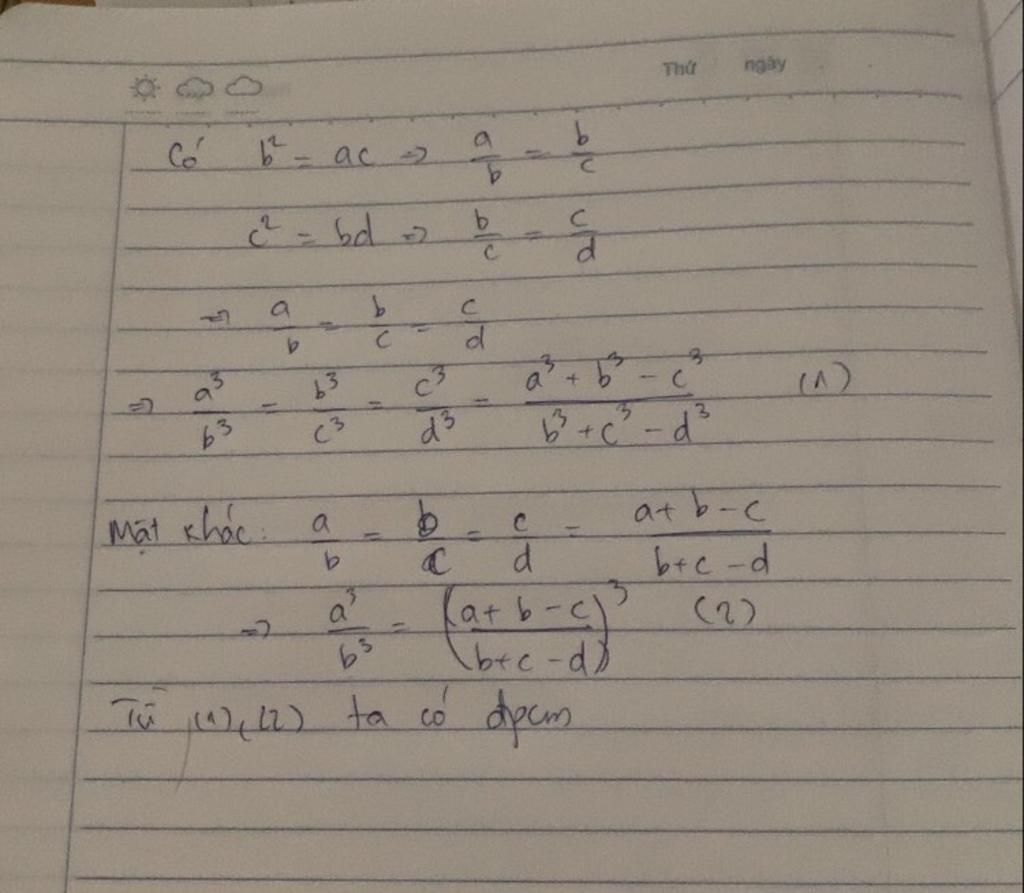 Thứ ngày
Có b² = ac => a/b = b/c
c² = bd => b/c = c/d
=> a/b = b/c = c/d
=> a³/b³ = b³/c³ = c³/d³ = (a³ + b³ - c³)/(b³ + c³ - d³) (1)
Mặt khác: a/b = b/c = c/d = (a + b - c)/(b + c - d)
=> a³/b³ = ((a + b - c)/(b + c - d))³ (2)
Từ (1), (2) ta có đpcm